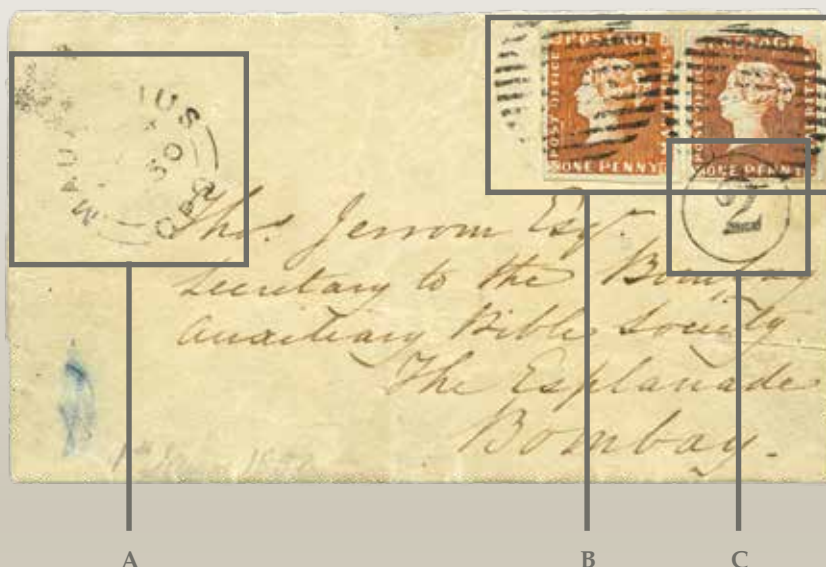 MAURITIUS
50
GPO
POSTAGE
POST OFFICE
MAURITIUS
ONE PENNY
POSTAGE
POST OFFICE
MAURITIUS
ONE PENNY
2
Thos. Jerrom Esqr.
Secretary to the Bombay
Auxiliary Bible Society
The Esplanade
Bombay.
A
B
C